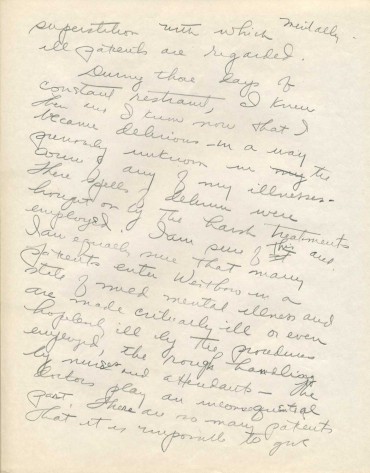 superstition with which mentally
ill patients are regarded.
During those days of
constant restraint, I knew
then and I know now that I
became delirious - in a way
previously unknown in my the
course of any of my illnesses -
These spells of delirium were
brought on by the harsh treatments
employed. I am sure of this and
I am equally sure that many
patients enter Westboro in a
state of mild mental illness and
are made critically ill or even
hopelessly ill by the procedures
employed, the rough handling
by nurses and attendants - The
doctors play an inconsequential
part. There are so many patients
that it is impossible to give